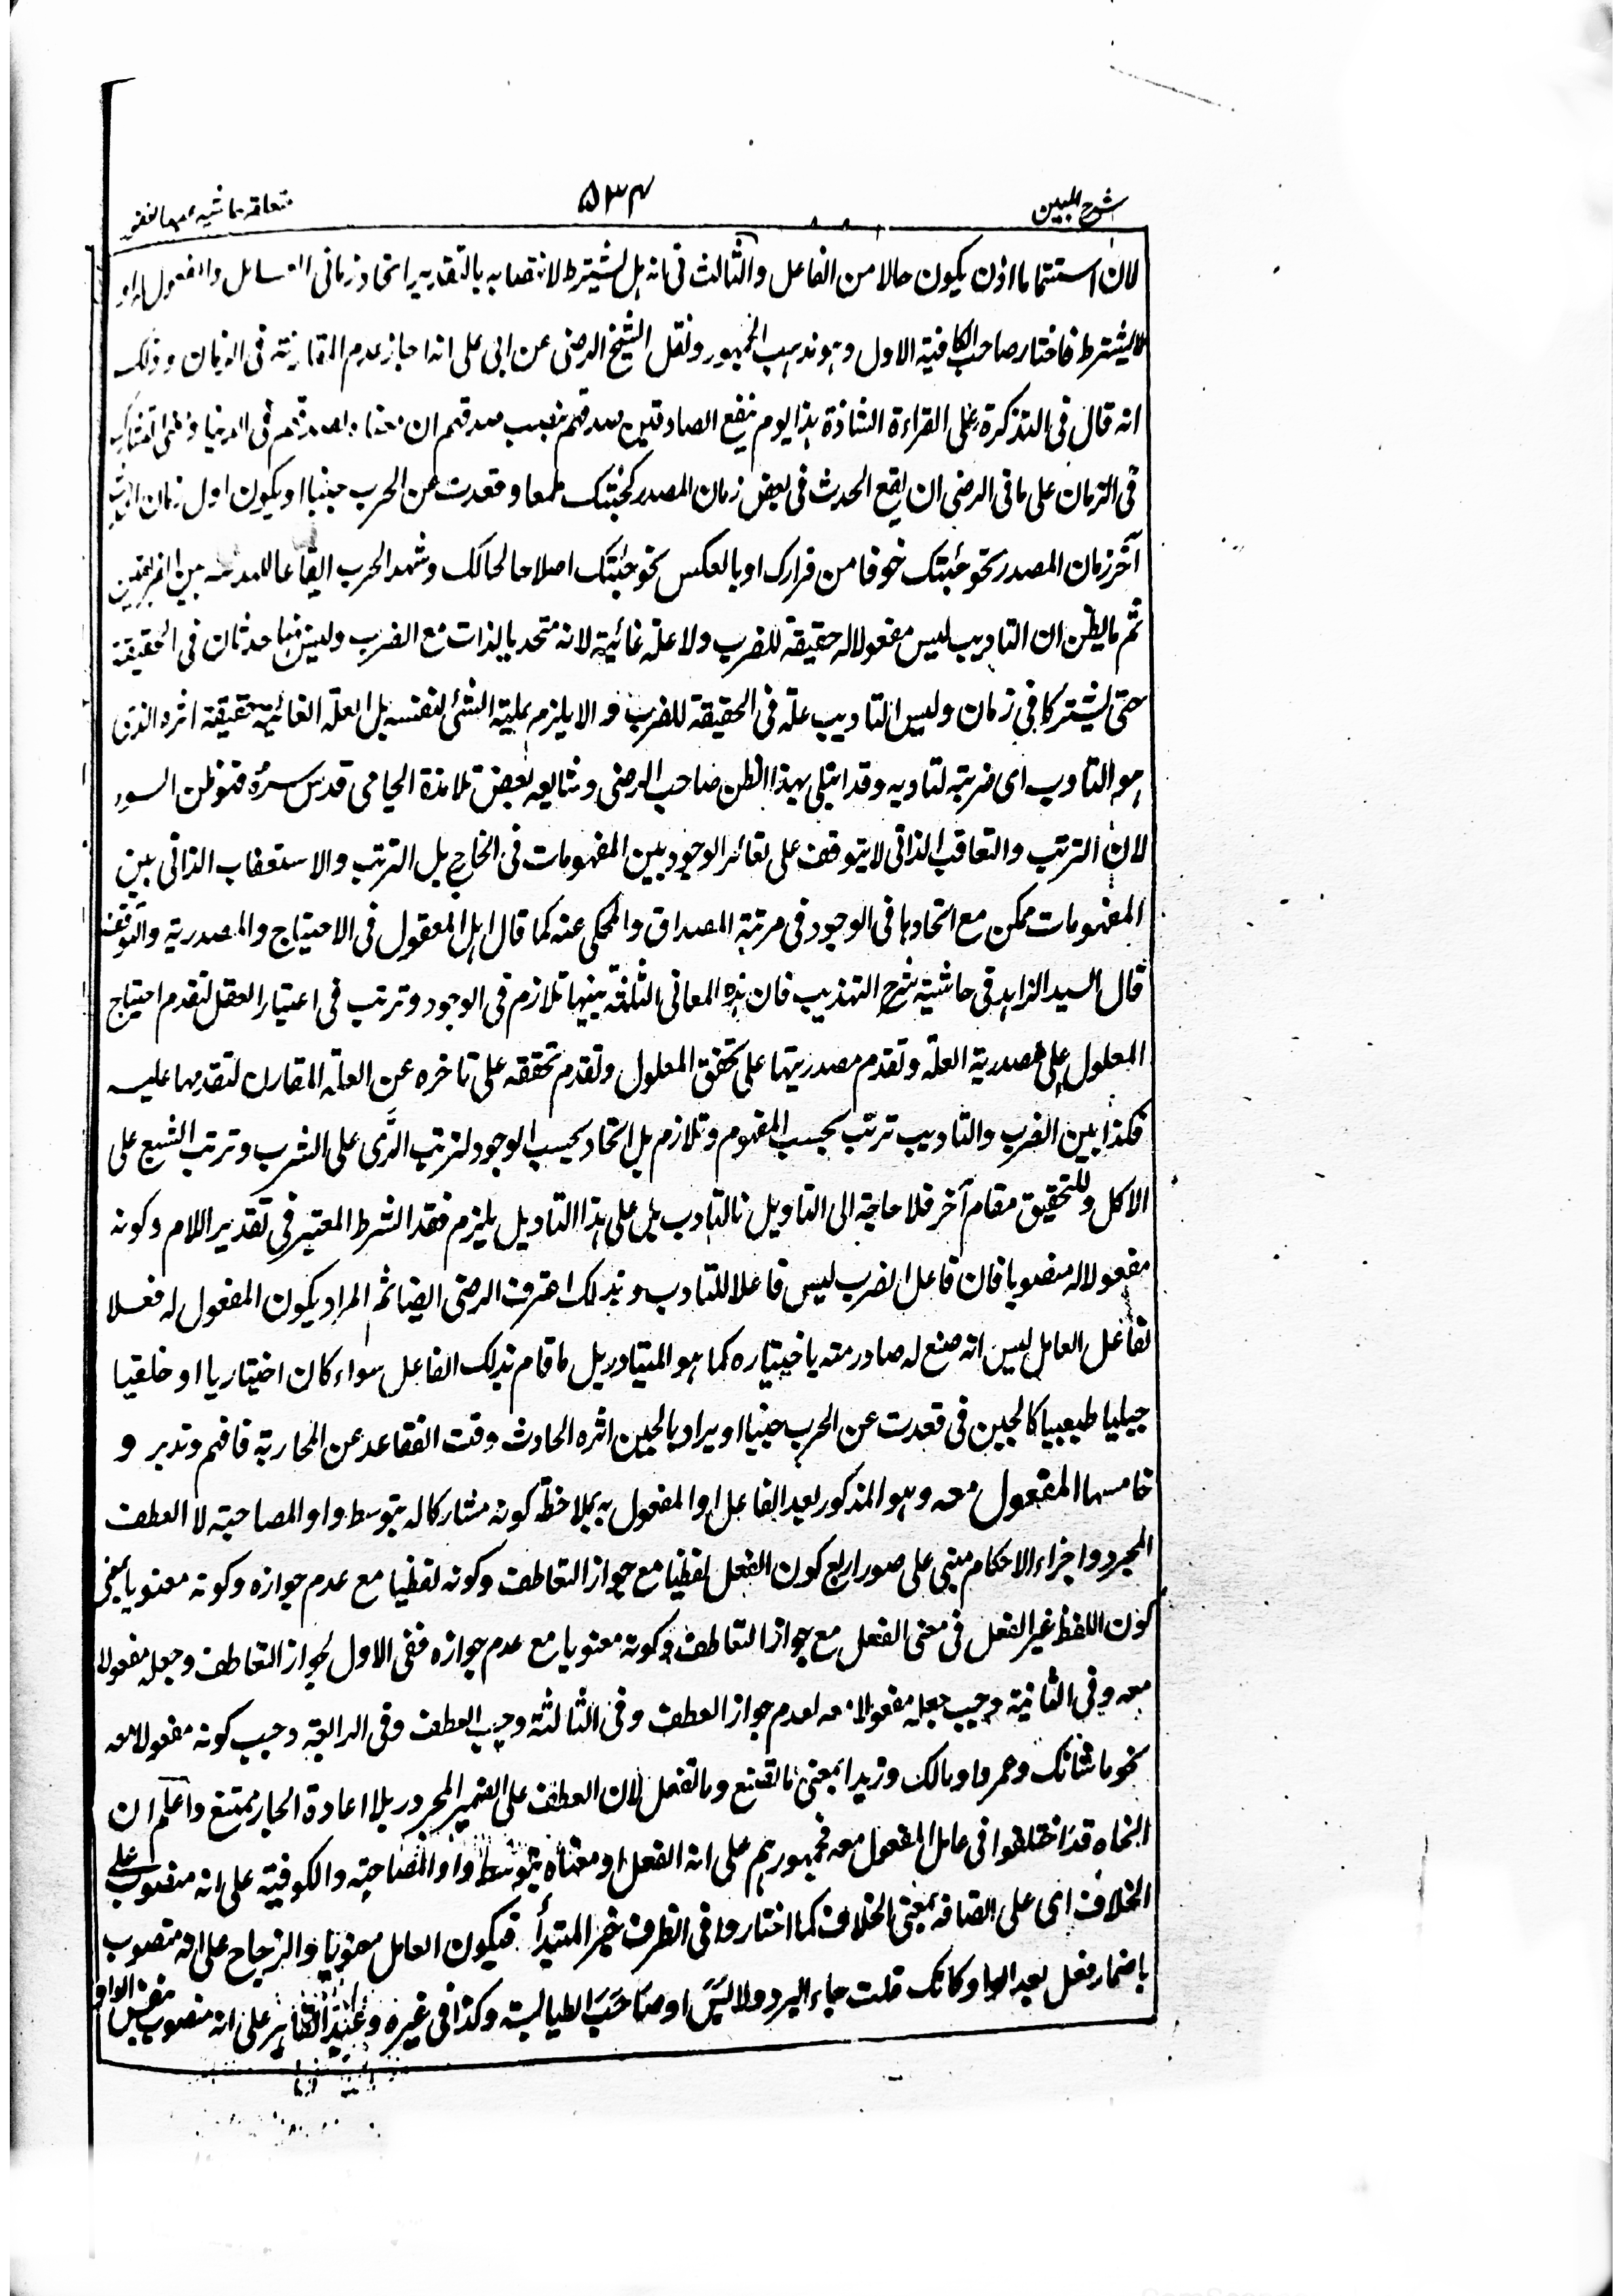 شرح المبين
۵۳۴
لان استتماما اذن يكون حالا من الفاعل والثالث فى انه هل يشترط لانتصابه بالتقدير اتحاد زمانى والمفعول له او
لا يشترط فاختار صاحب الكافية الاول وهو مذهب الجمهور ونقل الشيخ الرضى عن ابى على انه اجاز عدم المقارنة فى الزمان وذلك
انه قال فى التذكرة على القراءة الشاذة هذا يوم ينفع الصادقين صدقهم بنصب صدقهم ان معناه لصدقهم فى الدنيا
فى الزمان على ما فى الرضى ان يقع الحدث فى بعض زمان المصدر كجئتك طمعا وقعدت عن الحرب جبنا او يكون اول زمان الحدث
آخر زمان المصدر نحو جئتك خوفا من فرارك او بالعكس نحو جئتك اصلاحا لحالك وشهد الحرب ايقاعا للهدنة بين الفريقين
ثم ما يظن ان التاديب ليس مفعولا له حقيقة للضرب ولا علة غائية لانه متحد بالذات مع الضرب وليس هنا حدثان فى الحقيقة
حتى يشتركا فى زمان وليس التاديب علة فى الحقيقة للضرب والا يلزم علية الشئ لنفسه بل العلة الغائية حقيقة اثره الذى
هو التادب اى ضربته لتادبه وقد ابتلى بهذا الظن صاحب الرضى وشايعه بعض تلامذة الجامى قدس سره فهو ظن السوء
لان الترتب والتعاقب الذاتى لا يتوقف على تغائر الوجود بين المفهومات فى الخارج بل الترتب والاستعقاب الذاتى بين
المفهومات ممكن مع اتحادها فى الوجود فى مرتبة المصداق والمحكى عنه كما قال اهل المعقول فى الاحتياج والمصدرية والتوقف
قال السيد الزاهد فى حاشية شرح التهذيب فان هذه المعانى الثلثة بينها تلازم فى الوجود وترتب فى اعتبار العقل لتقدم احتياج
المعلول على مصدرية العلة وتقدم مصدريتها على تحقق المعلول وتقدم تحققه على تاخره عن العلة المقارن لتقدمها عليه
فكذا بين الضرب والتاديب ترتب بحسب المفهوم وتلازم بل اتحاد بحسب الوجود لترتب الرّى على الشرب وترتب الشبع على
الاكل وللتحقيق مقام آخر فلا حاجة الى التاويل بالتادب بل على هذا التاويل يلزم فقد الشرط المعتبر فى تقدير اللام وكونه
مفعولا له منصوبا فان فاعل الضرب ليس فاعلا للتادب وبذلك اعترف الرضى ايضا ثم المراد بكون المفعول له فعلا
لفاعل العامل ليس انه صنع له صادر منه باختياره كما هو المتبادر بل ما قام بذلك الفاعل سواء كان اختياريا او خلقيا
جبليا طبيعيا كالجبن فى قعدت عن الحرب جبنا او يراد بالجبن اثره الحادث وقت التقاعد عن المحاربة فافهم وتدبر و
خامسها المفعول معه وهو المذكور بعد الفاعل او المفعول به بملاحظة كونه مشاركا له بتوسط واو المصاحبة لا العطف
المجرد واجراء الاحكام مبنى على صور اربع كون الفعل لفظيا مع جواز التعاطف وكونه لفظيا مع عدم جوازه وكونه معنويا بمعنى
كون اللفظ غير الفعل فى معنى الفعل مع جواز التعاطف وكونه معنويا مع عدم جوازه ففى الاول يجوز التعاطف وجعله مفعولا
معه وفى الثانية وجب جعله مفعولا معه لعدم جواز العطف وفى الثالثة وجب العطف وفى الرابعة وجب كونه مفعولا معه
نحو ما شانك وعمروا ومالك وزيدا بمعنى ما تصنع وما تفعل لان العطف على الضمير المجرور بلا اعادة الجار ممتنع واعلم ان
النحاة قد اختلفوا فى عامل المفعول معه فجمهورهم على انه الفعل او معناه بتوسط واو المصاحبة والكوفية على انه منصوب على
الخلاف اى على اتصافه بمعنى الخلاف كما اختاروا فى الظرف خبر المبتدأ فيكون العامل معنويا والزجاج على انه منصوب
باضمار فعل بعد الواو كانك قلت جاء البرد ولابَسَ او صاحَبَ الطيالسة وكذا فى غيره وعبد القاهر على انه منصوب بنفس الواو